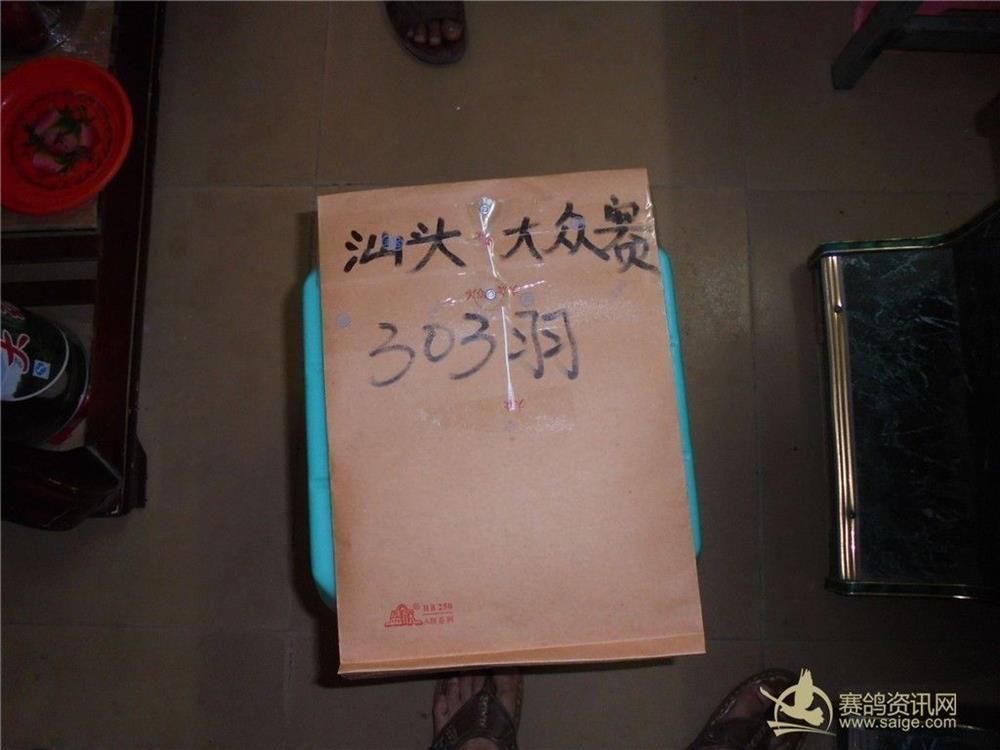 汕头 大众赛
303羽
® HB 250
A级系列
赛鸽资讯网
www.saige.com